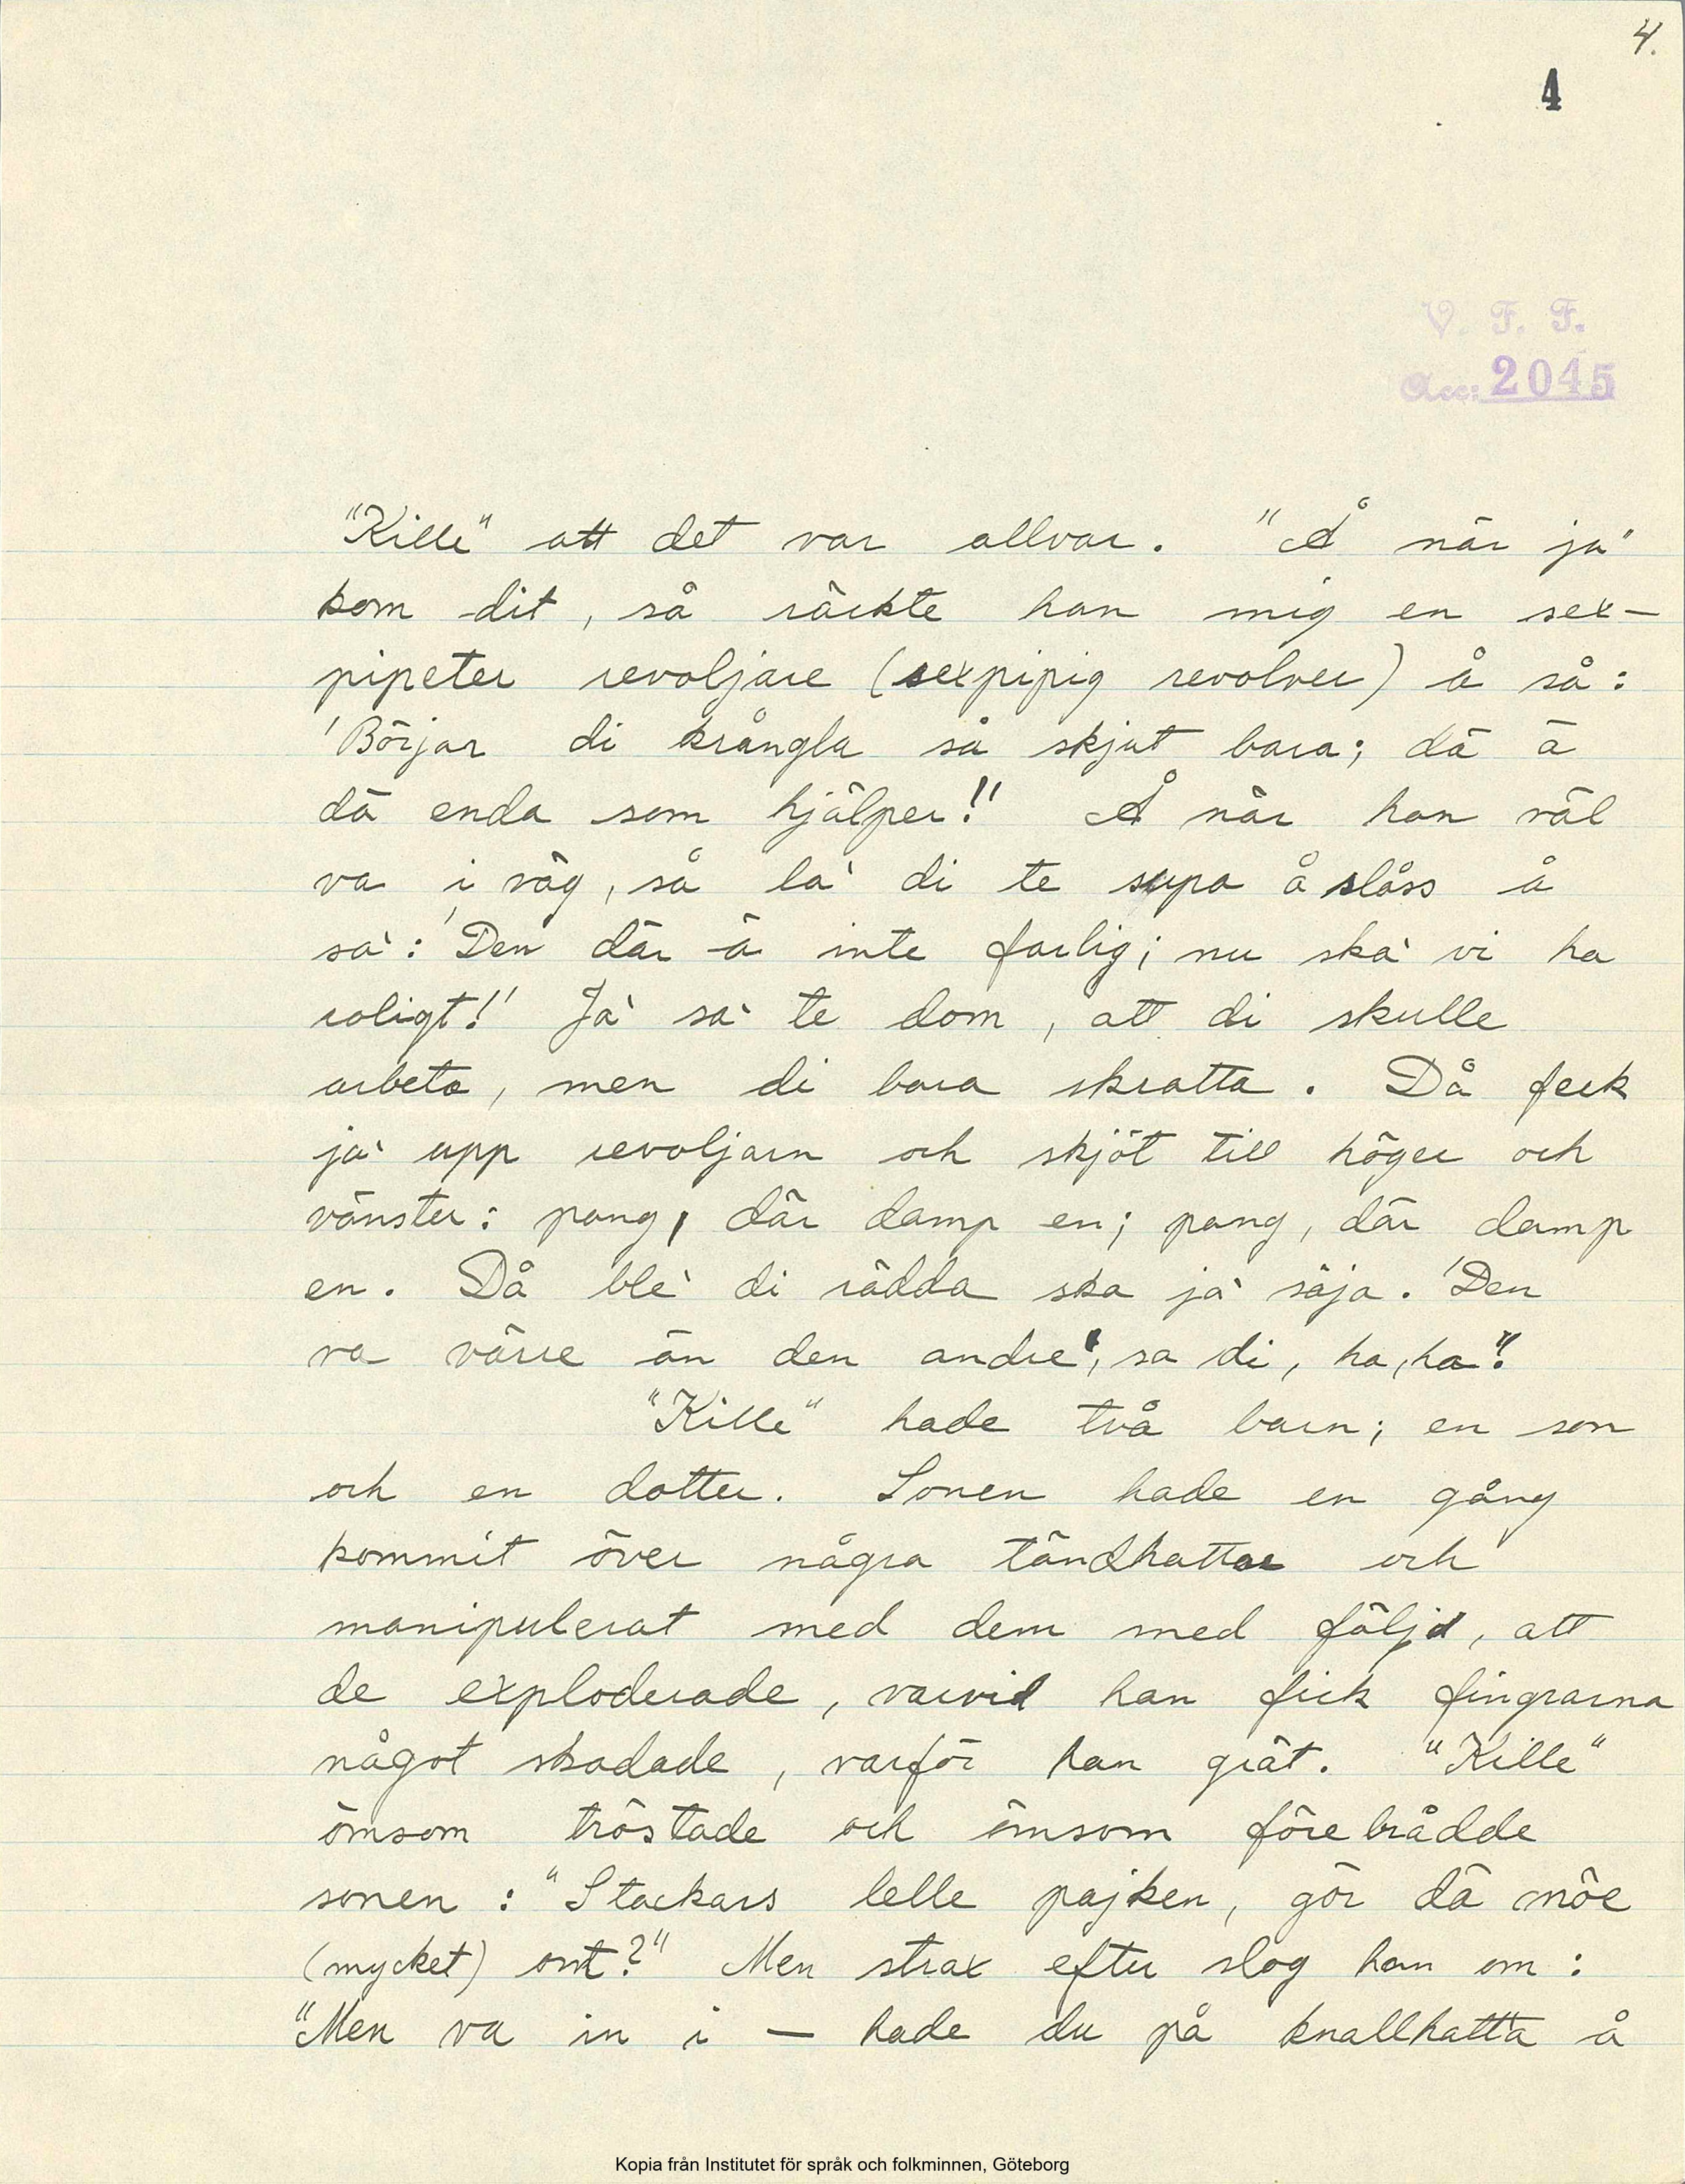 4.
4
V. F. F.
Acc: 2045
"Kille" att det var allvar. "Å när ja'
kom dit, så räckte han mig en sex-
pipeter revoljare (sexpipig revolver) å sa:
'Börjar di krångla så skjut bara; dä ä
dä enda som hjälper!' Å när han väl
va i väg, så la' di te supa å slåss å
sa': 'Den där ä inte farlig; nu ska' vi ha
roligt!' Ja' sa' te dom, att di skulle
arbeta, men di bara skratta. Då feck
ja' upp revoljarn och skjöt till höger och
vänster: pang, där damp en; pang, där damp
en. Då ble' di rädda ska ja' säja. 'Den
va värre än den andre', sa di, ha, ha".
"Kille" hade två barn; en son
och en dotter. Sonen hade en gång
kommit över några tändhattar och
manipulerat med dem med följd, att
de exploderade, varvid han fick fingrarna
något skadade, varför han grät. "Kille"
ömsom tröstade och ömsom förebrådde
sonen: "Stackars lelle pajken, gör dä möe
(mycket) ont?" Men strax efter slog han om:
"Men va in i — hade du på knallhatta å
Kopia från Institutet för språk och folkminnen, Göteborg